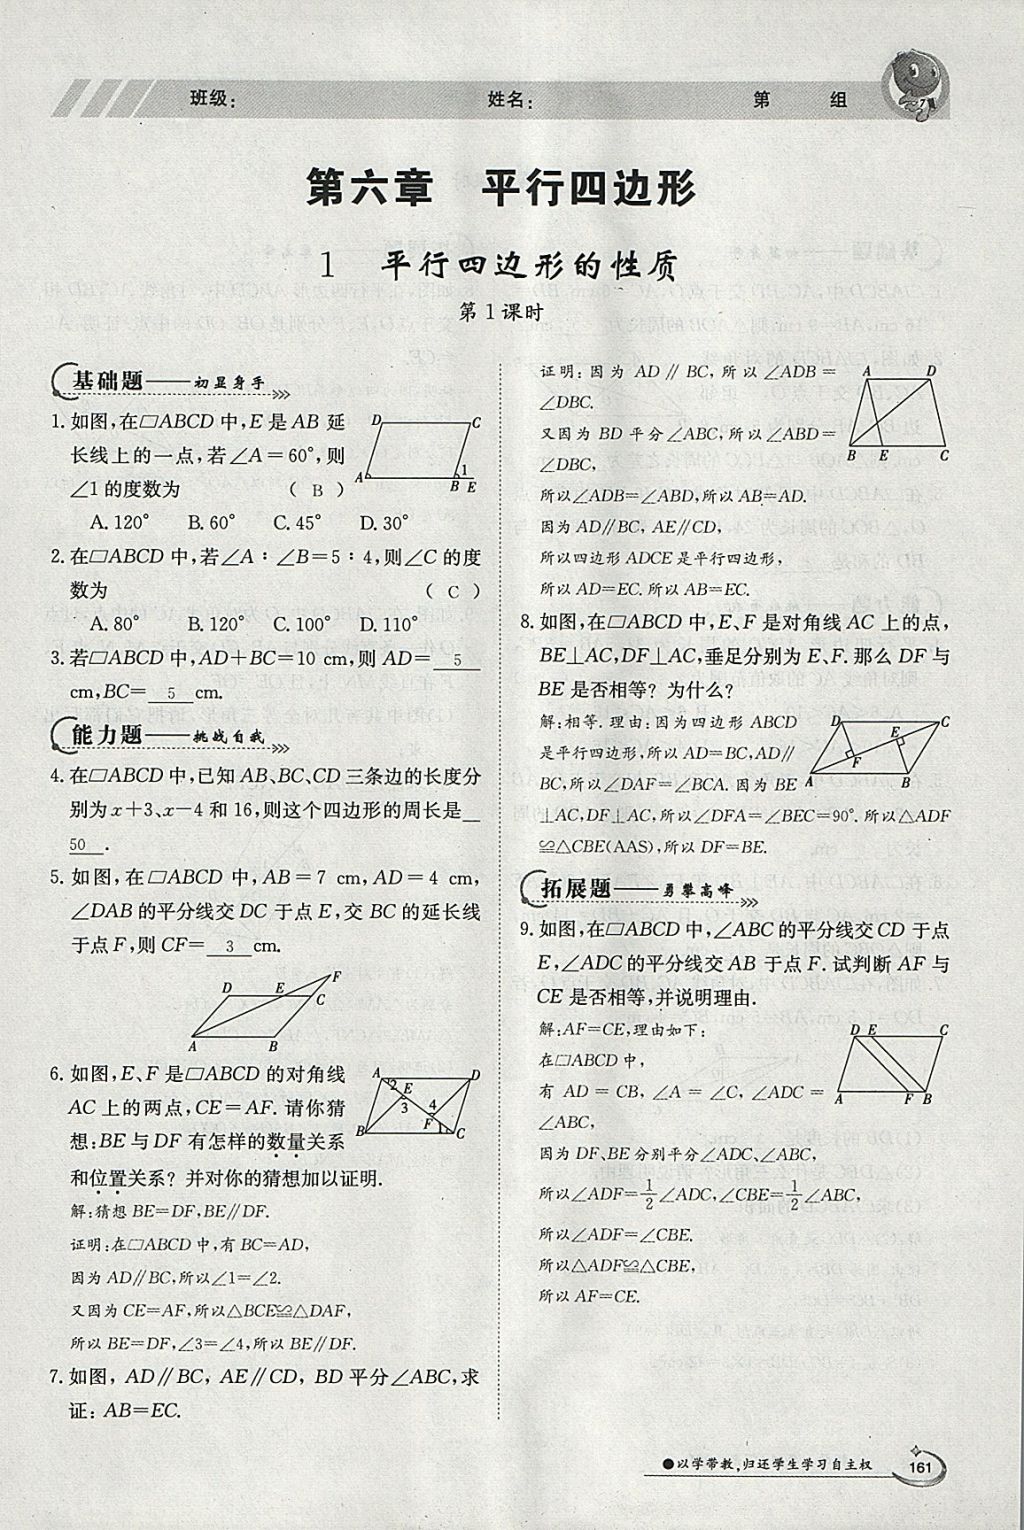 班级：	姓名：	第	组
第六章 平行四边形
1 平行四边形的性质
第1课时
基础题——初显身手
1. 如图,在▱ABCD中,E是AB延
长线上的一点,若∠A=60°,则
∠1的度数为 ( B )
A. 120° B. 60° C. 45° D. 30°
D C A B E 1
2. 在▱ABCD中,若∠A∶∠B=5∶4,则∠C的度
数为 ( C )
A. 80° B. 120° C. 100° D. 110°
3. 若▱ABCD中,AD+BC=10 cm,则AD= 5
cm,BC= 5 cm.
能力题——挑战自我
4. 在▱ABCD中,已知AB、BC、CD三条边的长度分
别为x+3、x-4和16,则这个四边形的周长是
50 .
5. 如图,在▱ABCD中,AB=7 cm,AD=4 cm,
∠DAB的平分线交DC于点E,交BC的延长线
于点F,则CF= 3 cm.
F D E C A B
6. 如图,E、F是▱ABCD的对角线
AC上的两点,CE=AF.请你猜
想:BE与DF有怎样的数量关系
和位置关系? 并对你的猜想加以证明.
A D 2 E 3 4 F 1 B C
解:猜想BE=DF,BE∥DF.
证明:在▱ABCD中,有BC=AD,
因为AD∥BC,所以∠1=∠2.
又因为CE=AF,所以△BCE≌△DAF,
所以BE=DF,∠3=∠4,所以BE∥DF.
7. 如图,AD∥BC,AE∥CD,BD平分∠ABC,求
证:AB=EC.
证明:因为AD∥BC,所以∠ADB=
∠DBC.
又因为BD平分∠ABC,所以∠ABD=
∠DBC,
所以∠ADB=∠ABD,所以AB=AD.
因为AD∥BC,AE∥CD,
所以四边形ADCE是平行四边形,
所以AD=EC.所以AB=EC.
A D B E C
8. 如图,在▱ABCD中,E、F是对角线AC上的点,
BE⊥AC,DF⊥AC,垂足分别为E、F.那么DF与
BE是否相等? 为什么?
解:相等.理由:因为四边形ABCD
是平行四边形,所以AD=BC,AD∥
BC,所以∠DAF=∠BCA.因为BE
⊥AC,DF⊥AC,所以∠DFA=∠BEC=90°.所以△ADF
≌△CBE(AAS),所以DF=BE.
D C E F A B
拓展题——勇攀高峰
9. 如图,在▱ABCD中,∠ABC的平分线交CD于点
E,∠ADC的平分线交AB于点F.试判断AF与
CE是否相等,并说明理由.
解:AF=CE,理由如下:
在▱ABCD中,
有AD=CB,∠A=∠C,∠ADC=
∠ABC,
因为DF、BE分别平分∠ADC、∠ABC,
所以∠ADF=1/2∠ADC,∠CBE=1/2∠ABC,
所以∠ADF=∠CBE.
所以△ADF≌△CBE,
所以AF=CE.
D E C A F B
●以学带教,归还学生学习自主权
161